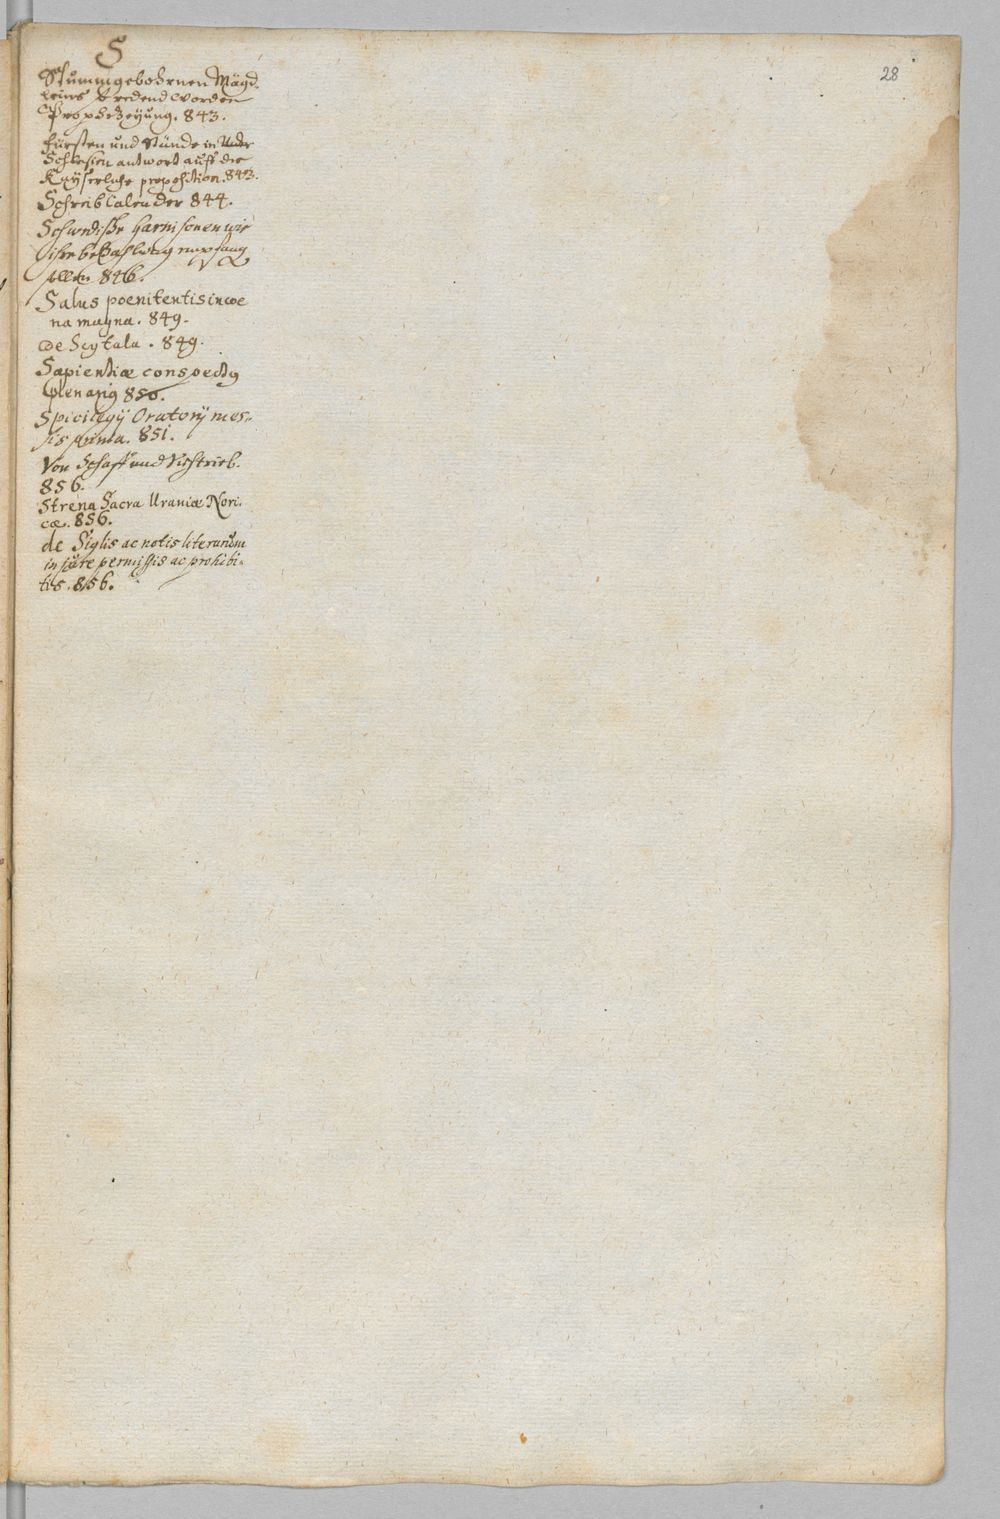 28
S
Stummgebohrnen Mägd-
leins so redend worden
Prophezeyung. 843.
Fürsten und Stände in Under
Schlesien antwort auff die
Kayserliche proposition. 843.
Schreib Calender 844.
Schwedische Garnisonen wie
ihre bezahlung empfang
sollen 846.
Salus poenitentis in coe
na magna. 849.
De Scytala. 849.
Sapientiæ conspectus
plenarius 850.
Spicilegij Oratorij mes-
sis prima. 851.
Von Schaff und Viehtrieb.
856.
Strena Sacra Uraniæ Nori-
cæ. 856.
de Siglis ac notis literarum
in jure permissis ac prohibi-
tis. 856.